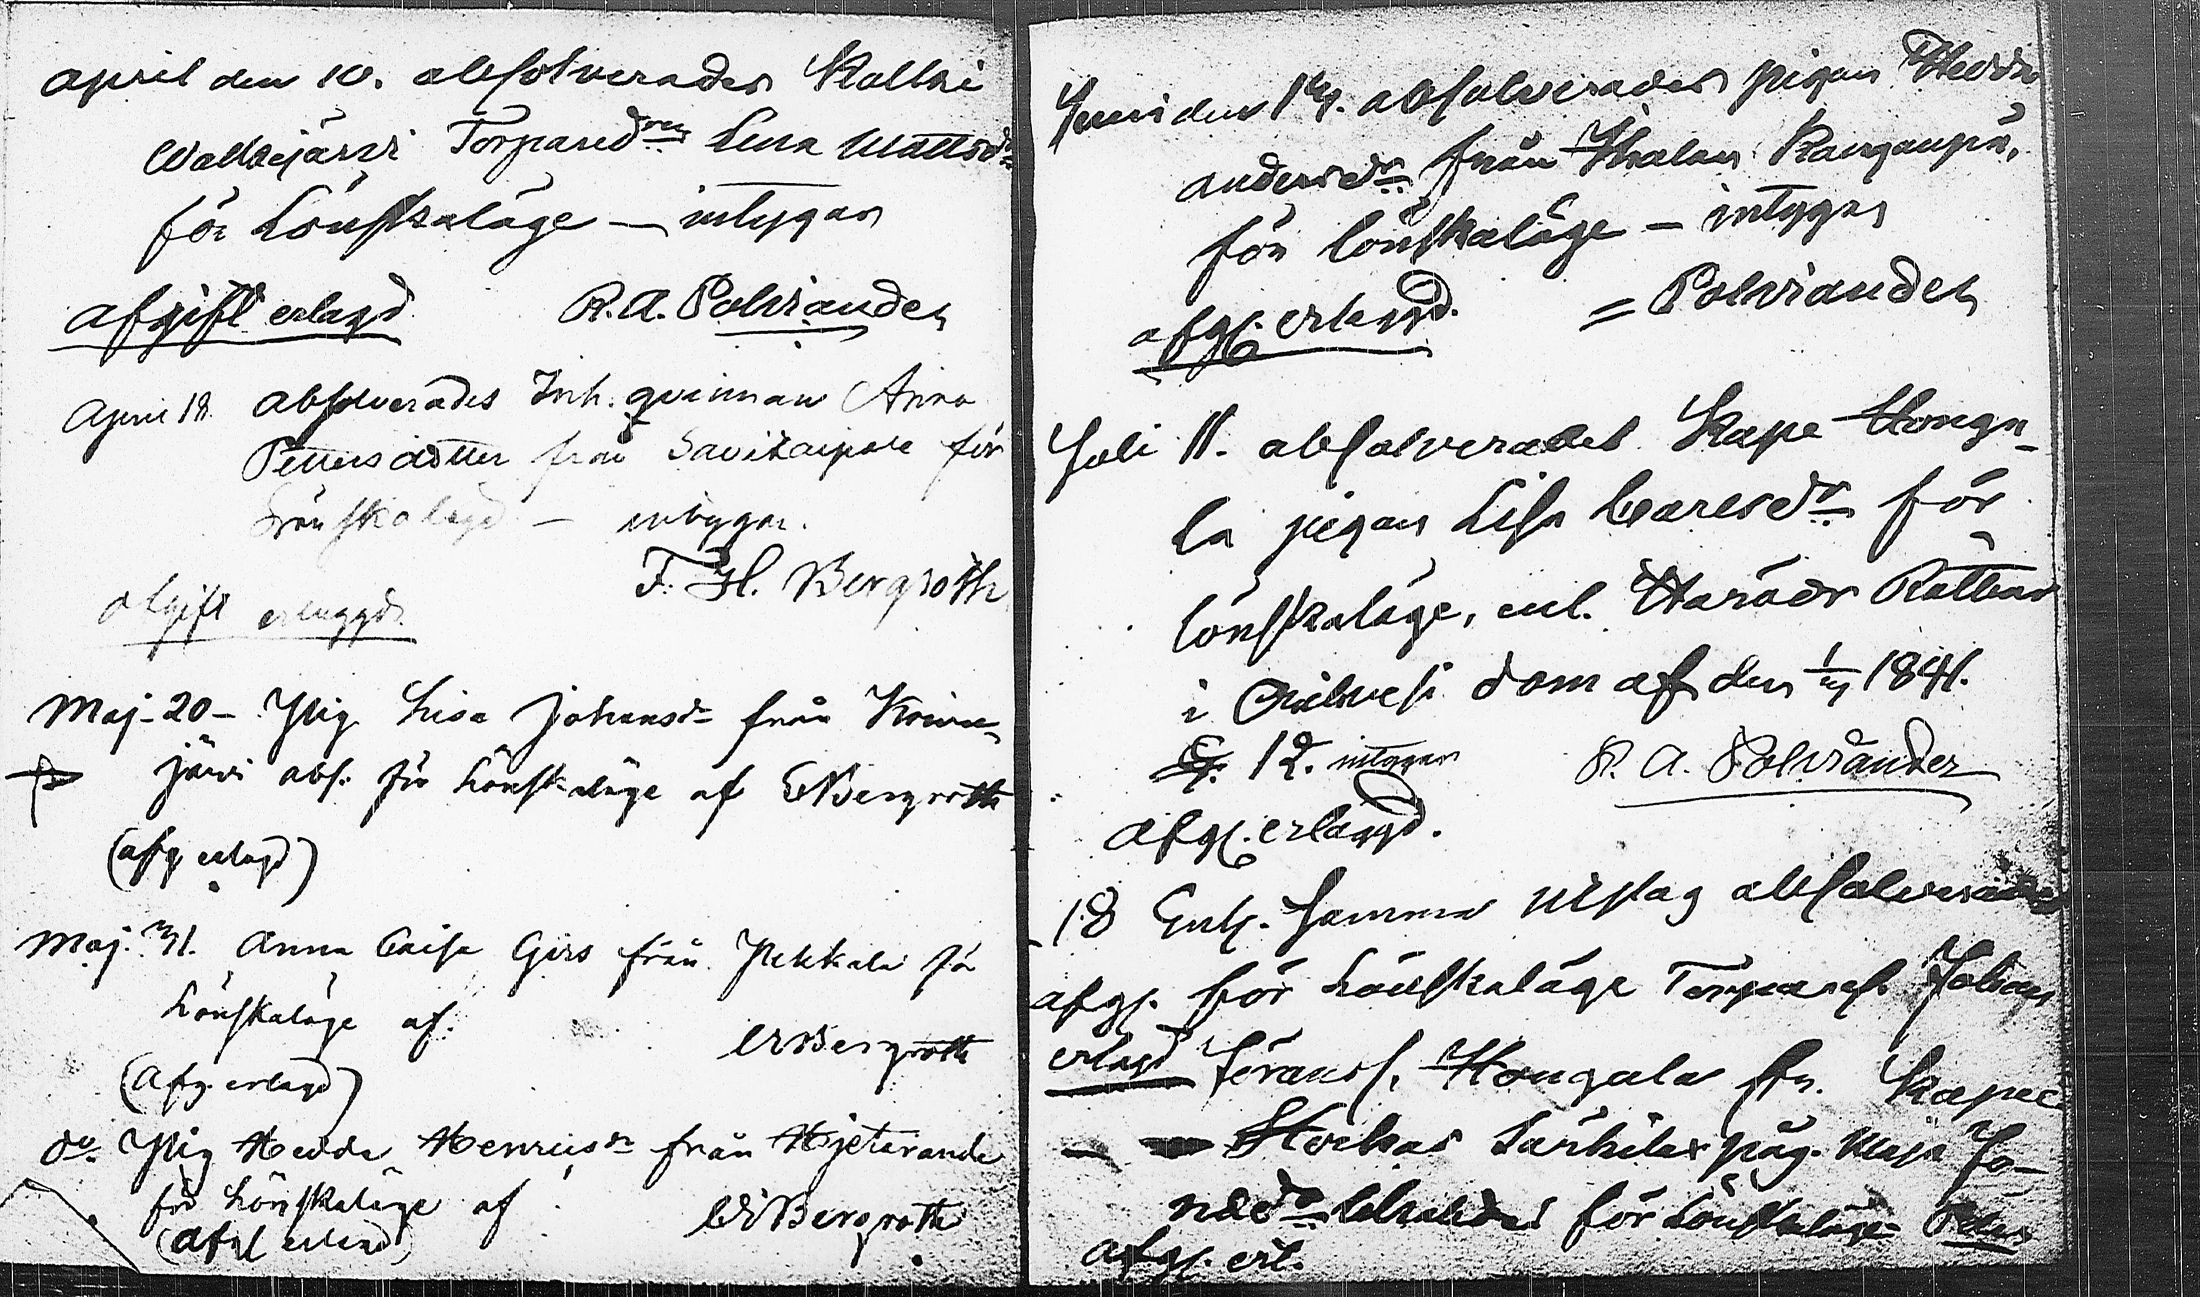 April den 10. absolverades Kalkki
Walkejärvi Torpared:ron Lena Mattsdr
för Lönskaläge — intygar
afgift erlagd R. A. Polviander
April 18. absolverades Inh. qvinnan Anna
Pettersdotter från Savitaipale för
Lönskaläge — intygar.
F. H. Bergroth
afgift erlaggd.
Maj - 20 - Pig. Lisa Johansdr från Koivu-
järvi abs. för Lönskaläge af Bergroth
(afg. erlagd)
Maj. 31. Anna Caisa Girs från Pekkala för
Lönskaläge af.
Bergroth
(Afg. erlagd)
do. Pig Hedda Henricsdr från Hjetaranda
för Lönskaläge af
Bergroth
(Afg erlagd)
Juni den absolverades pigan Hedda
Andersdr. från Ihalan Kangaspä,
för lönskaläge – intygar
afg. erlaggd. = Polviander
Juli 11. absolverades Kape Honga-
la pigan Lisa Carlsdr. för
lönskaläge, enl. Härads Rättens
i dom af den 1841.
§. 12. intygar R. A. Polviander
afg. erlaggd.
18 Enl. samma utslag absolverades
afg. för Lönskaläge Torparens Johan
erlagd Göranss. Hongala fr. Kape
Storkas Särkilax pig. Maja Jo-
nasdr för Lönskaläge
afg. erl.